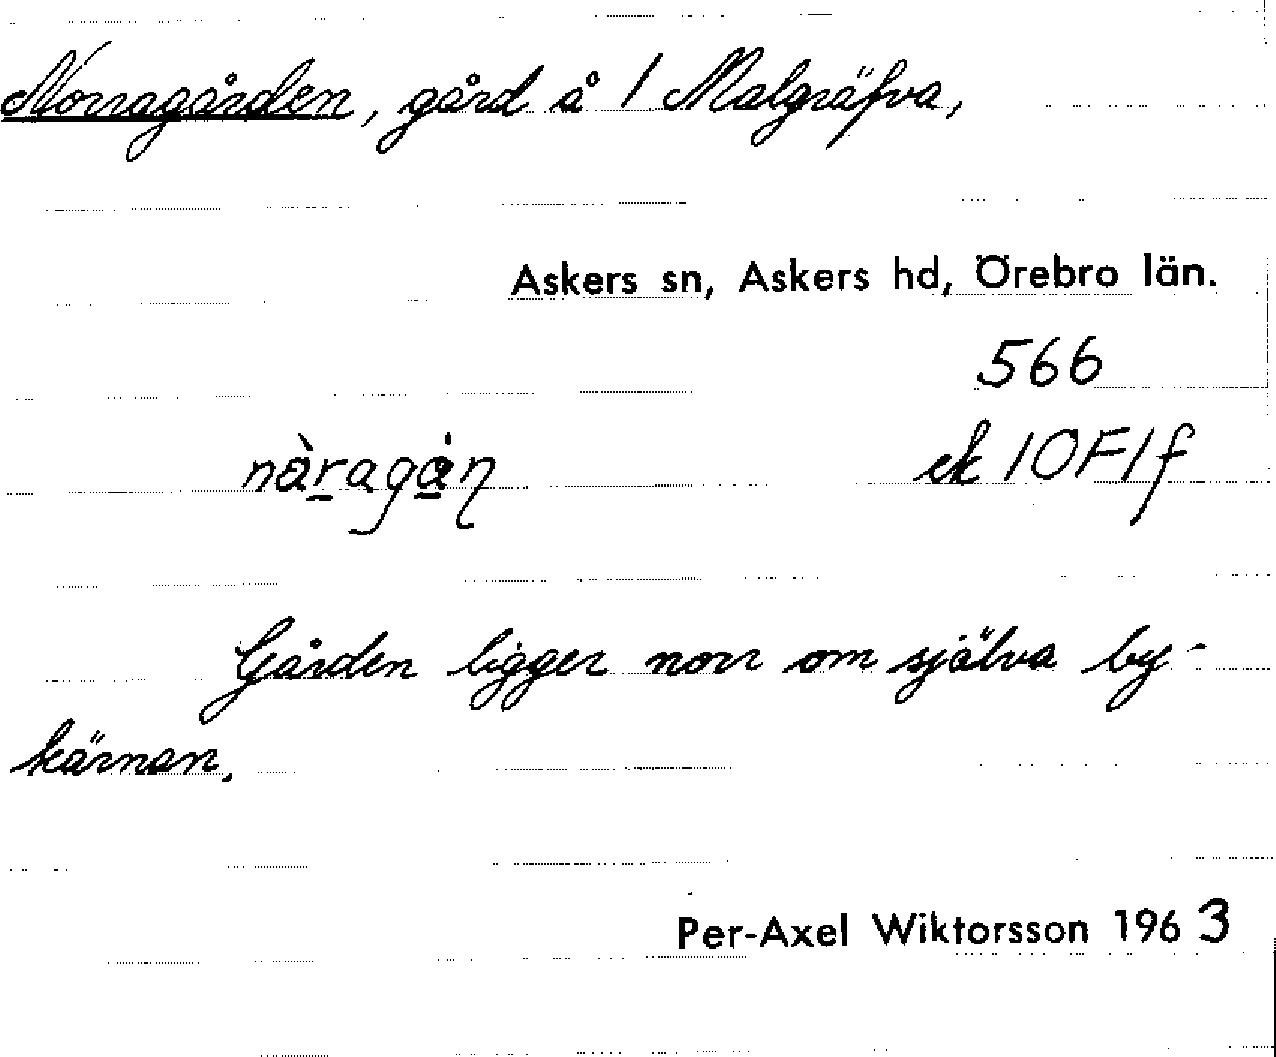 Norragården, gård å 1 Malgräfva,
Askers sn, Askers hd, Örebro län.
566
nàragán̥ ek 10F1f
Gården ligger norr om själva by-
kärnan.
Per-Axel Wiktorsson 1963